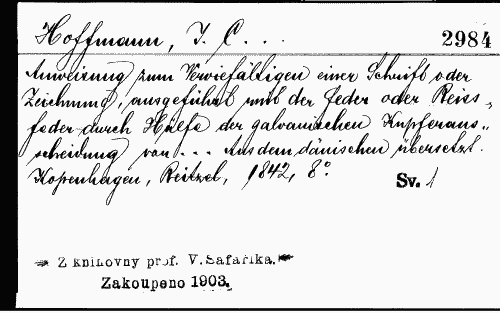 Hoffmann, J. C. . . . 2984
Anweisung zum Verviefältigen einer Schrift oder
Zeichnung, ausgeführt mit der Feder oder Reiss-
feder durch Hülfe der galvanischen Kupferaus-
scheidung von . . . Aus dem dänischen übersetzt.
Kopenhagen, Reitzel, 1842, 8° Sv. 1
Z knihovny prof. V. Šafaříka.
Zakoupeno 1903.